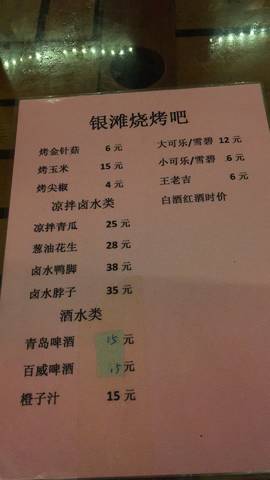 银滩烧烤吧
烤金针菇 6 元
烤玉米 15 元
烤尖椒 4 元
凉拌卤水类
凉拌青瓜 25 元
葱油花生 28 元
卤水鸭脚 38 元
卤水脖子 35 元
酒水类
青岛啤酒 15 元
百威啤酒 15 元
橙子汁 15 元
大可乐/雪碧 12 元
小可乐/雪碧 6 元
王老吉 6 元
白酒红酒时价